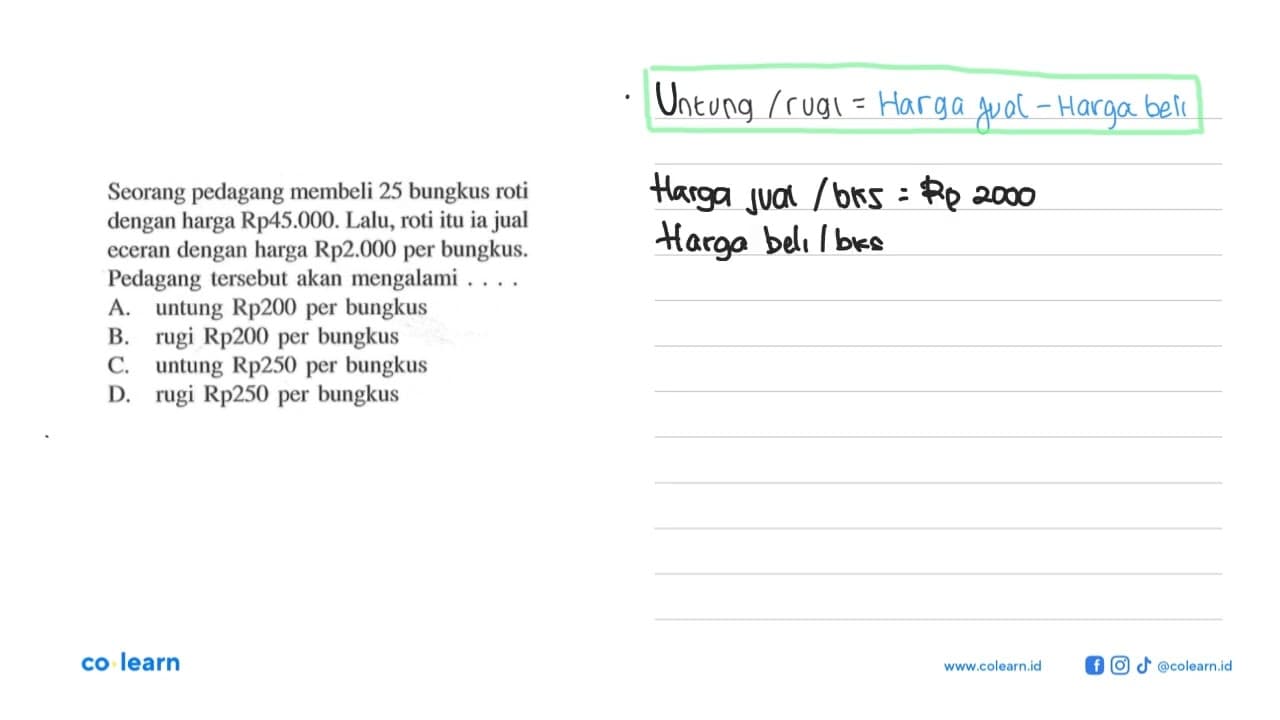 Untung / rugi = Harga jual - Harga beli
Seorang pedagang membeli 25 bungkus roti
dengan harga Rp45.000. Lalu, roti itu ia jual
eceran dengan harga Rp2.000 per bungkus.
Pedagang tersebut akan mengalami . . . .
A. untung Rp200 per bungkus
B. rugi Rp200 per bungkus
C. untung Rp250 per bungkus
D. rugi Rp250 per bungkus
Harga jual / bks = Rp 2000
Harga beli / bks
co learn
www.colearn.id
@colearn.id